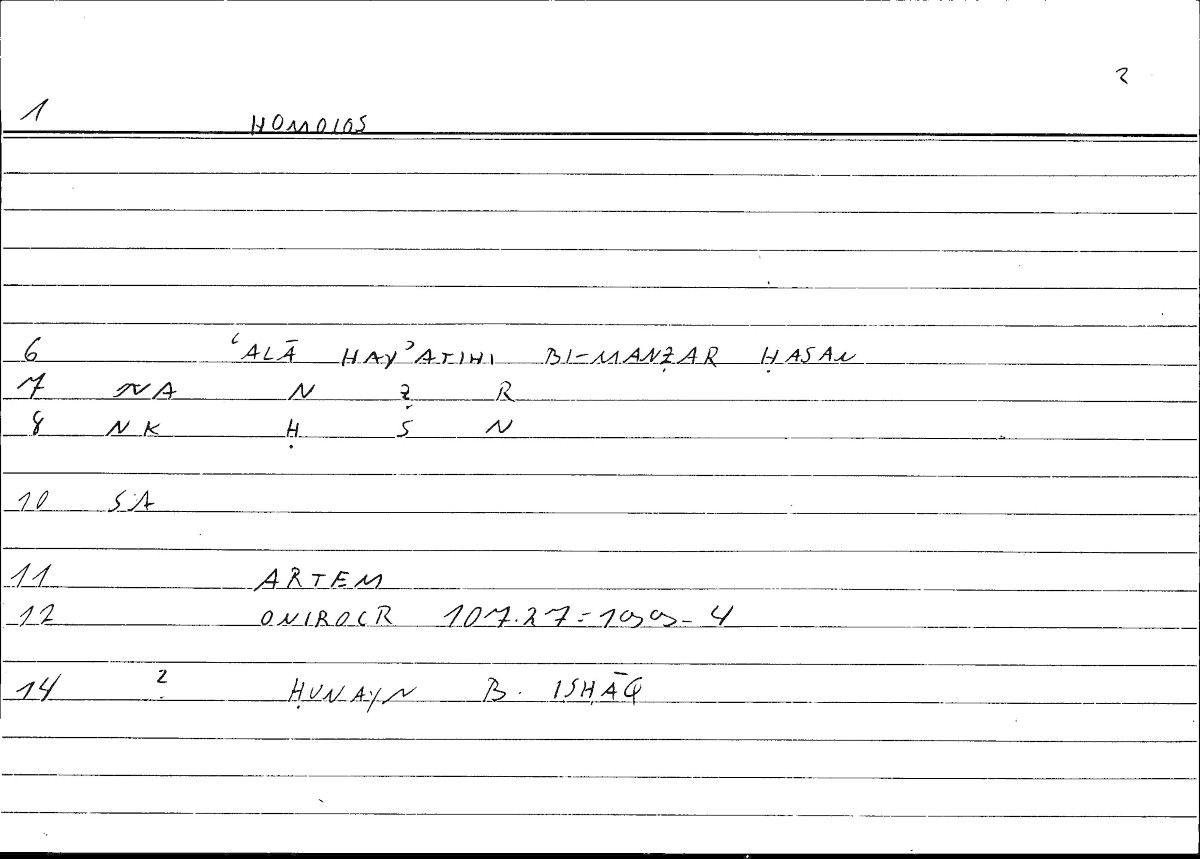 2
1 HOMOIOS
6 ʿALĀ HAYʾATIHI BI-MANẒAR ḤASAN
7 NA N Ẓ R
8 NK Ḥ S N
10 SA
11 ARTEM
12 ONIROCR 107.27=199-4
14 2 ḤUNAYN B. ISḤĀQ